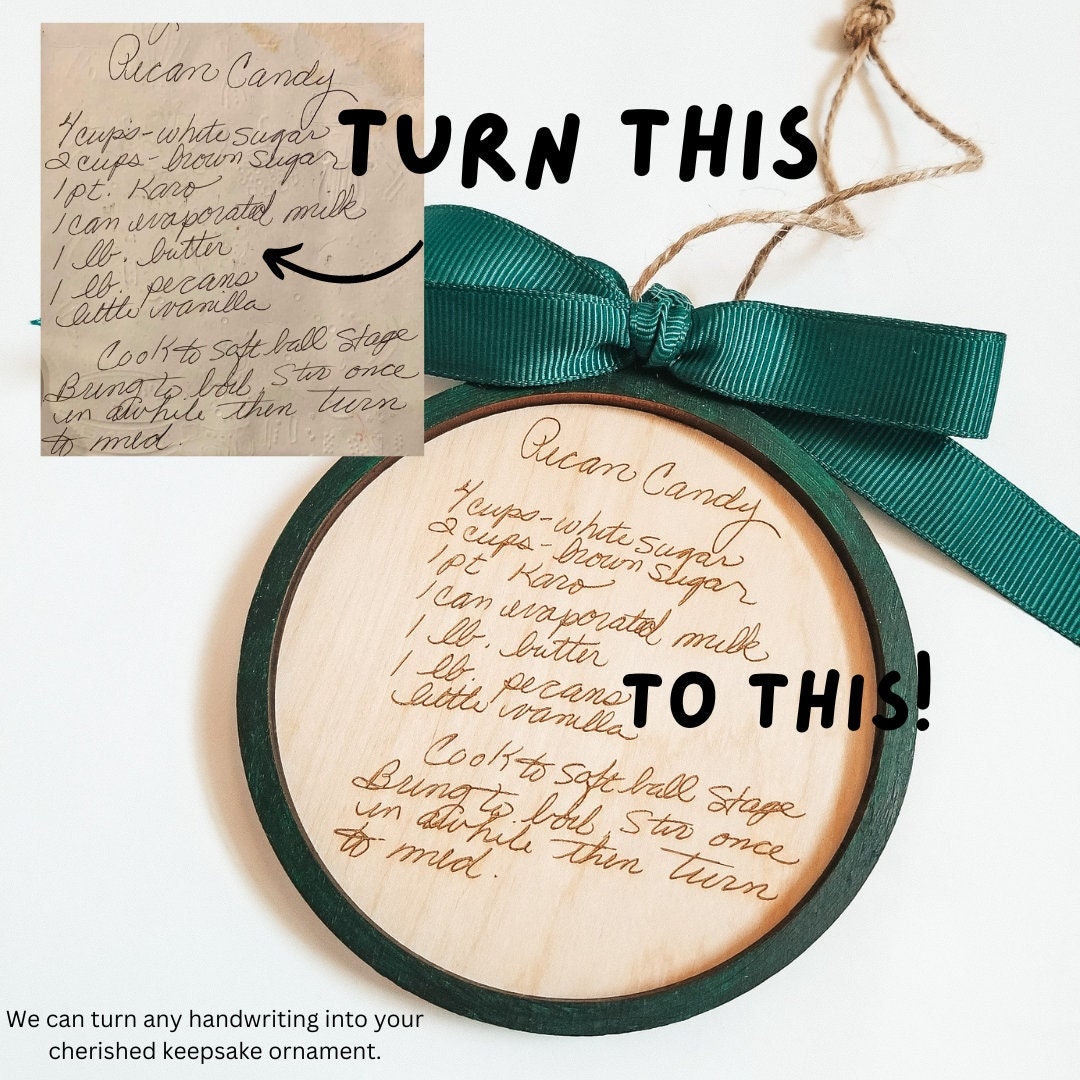 Pecan Candy
4 cups - white sugar
2 cups - brown sugar
1 pt. Karo
1 can evaporated milk
1 lb. butter
1 lb. pecans
little vanilla
Cook to soft ball stage
Bring to boil, Stir once
in awhile then turn
to med.
TURN THIS
Pecan Candy
4 cups - white sugar
2 cups - brown sugar
1 pt Karo
1 can evaporated milk
1 lb. butter
1 lb. pecans
little vanilla
Cook to soft ball stage
Bring to boil, Stir once
in awhile then turn
to med.
TO THIS!
We can turn any handwriting into your
cherished keepsake ornament.